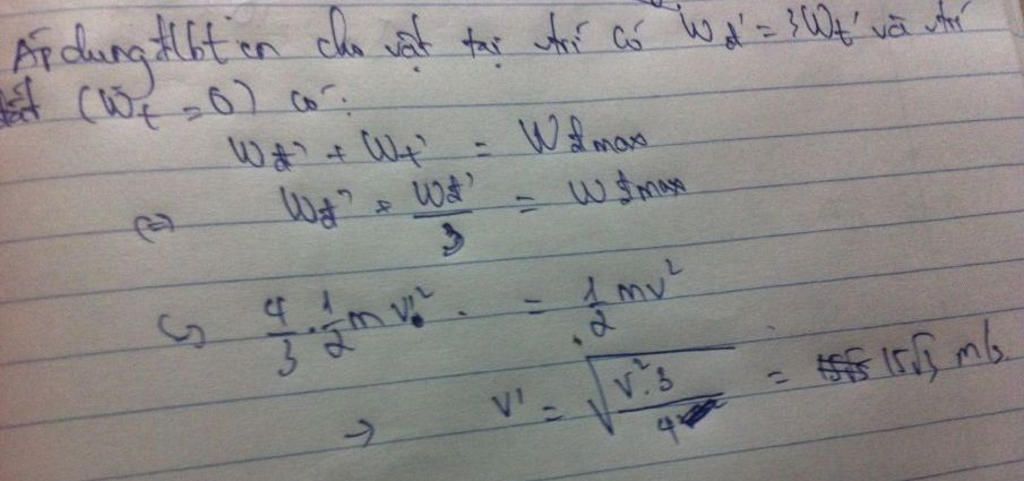 Áp dụng đlbt cn cho vật tại vtrí có Wđ' = 3Wt' và vtrí
đất (Wt = 0) có:
Wđ' + Wt' = Wđmax
⇔ Wđ' + Wđ'/3 = Wđmax
↪ 4/3 . 1/2 mv'² = 1/2 mv²
→ v' = √(v².3/4) = 15√3 m/s